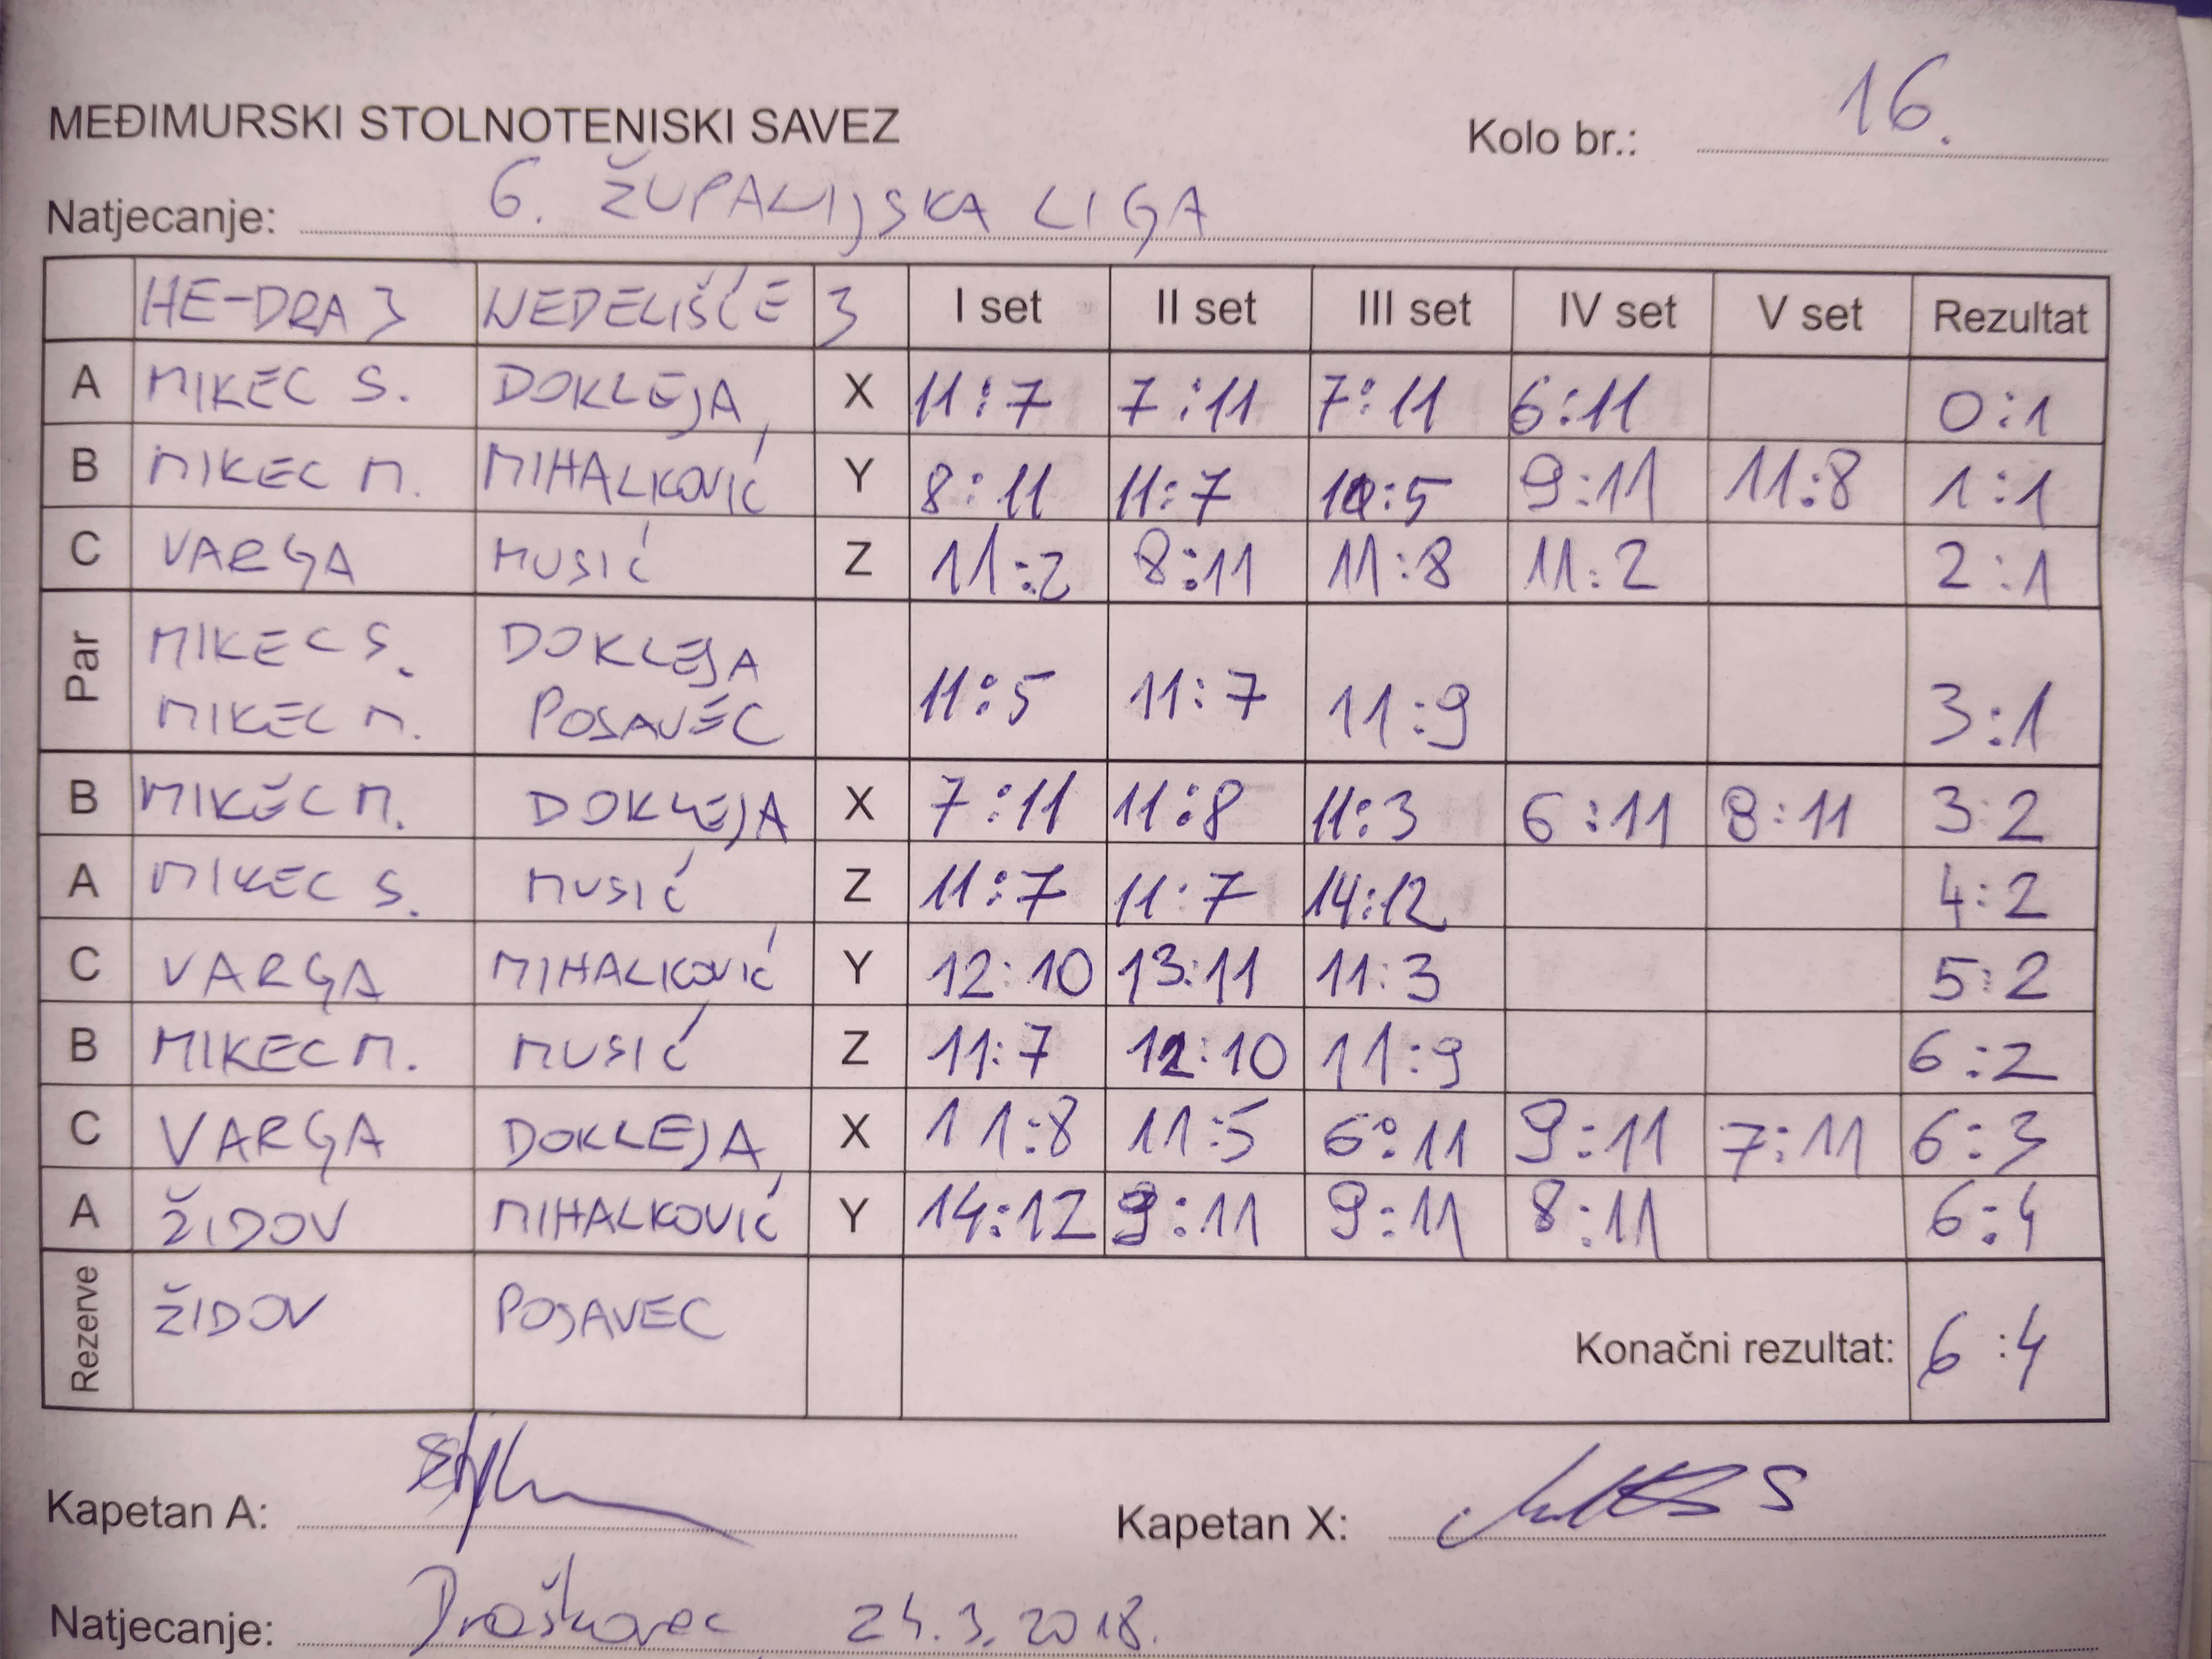 MEĐIMURSKI STOLNOTENISKI SAVEZ Kolo br.: 16.
Natjecanje: 6. ŽUPANIJSKA LIGA
HE-DRA 3 NEDELIŠĆE 3 I set II set III set IV set V set Rezultat
A MIKEC S. DOKLEJA X 11:7 7:11 7:11 6:11 0:1
B MIKEC M. MIHALKOVIĆ Y 8:11 11:7 11:5 9:11 11:8 1:1
C VARGA MUSIĆ Z 11:2 8:11 11:8 11:2 2:1
Par MIKEC S. DOKLEJA
MIKEC M. POSAVEC 11:5 11:7 11:9 3:1
B MIKEC M. DOKLEJA X 7:11 11:8 11:3 6:11 8:11 3:2
A MIKEC S. MUSIĆ Z 11:7 11:7 14:12 4:2
C VARGA MIHALKOVIĆ Y 12:10 13:11 11:3 5:2
B MIKEC M. MUSIĆ Z 11:7 12:10 11:9 6:2
C VARGA DOKLEJA X 11:8 11:5 6:11 9:11 7:11 6:3
A ŽIDOV MIHALKOVIĆ Y 14:12 9:11 9:11 8:11 6:4
Rezerve ŽIDOV POSAVEC Konačni rezultat: 6:4
Kapetan A: Kapetan X:
Natjecanje: Draškovec, 24.3.2018.